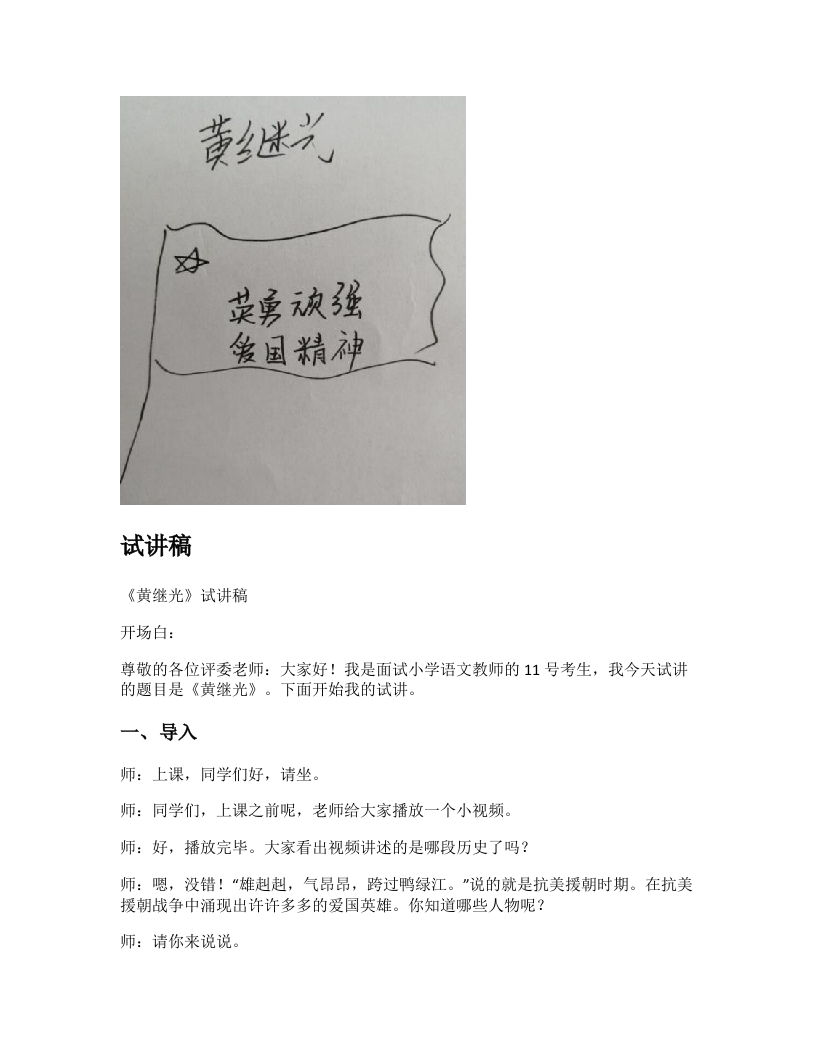 黄继光
英勇顽强
爱国精神
试讲稿
《黄继光》试讲稿
开场白：
尊敬的各位评委老师：大家好！我是面试小学语文教师的 11 号考生，我今天试讲
的题目是《黄继光》。下面开始我的试讲。
一、导入
师：上课，同学们好，请坐。
师：同学们，上课之前呢，老师给大家播放一个小视频。
师：好，播放完毕。大家看出视频讲述的是哪段历史了吗？
师：嗯，没错！“雄赳赳，气昂昂，跨过鸭绿江。”说的就是抗美援朝时期。在抗美
援朝战争中涌现出许许多多的爱国英雄。你知道哪些人物呢？
师：请你来说说。